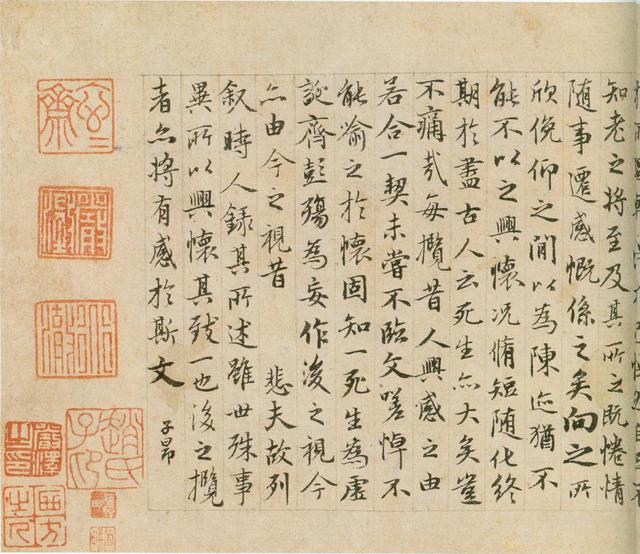 知老之將至及其所之既惓情
随事遷感慨係之矣向之所
欣俛仰之間以為陳迹猶不
能不以之興懷况脩短随化終
期於盡古人云死生亦大矣豈
不痛哉每攬昔人興感之由
若合一契未嘗不臨文嗟悼不
能喻之於懷固知一死生為虛
誕齊彭殤為妄作後之視今
亦由今之視昔 悲夫故列
叙時人録其所述雖世殊事
異所以興懷其致一也後之攬
者亦將有感於斯文
子昂
趙氏子昂